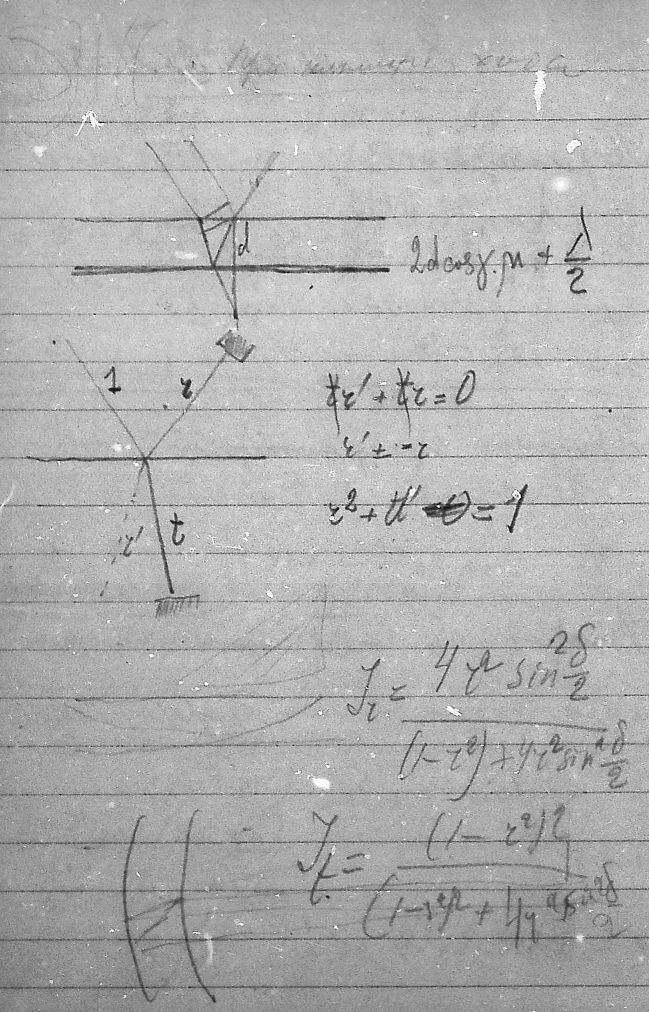 При
d
2d cos γ · μ + λ/2
1
r
tr' + tr = 0
r' = -r
r' t
r² + tt' = 1
J_r = 4r² sin² δ/2 / (1-r²) + 4r² sin² δ/2
J_t = (1-r²)² / (1-r²)² + 4r² sin² δ/2